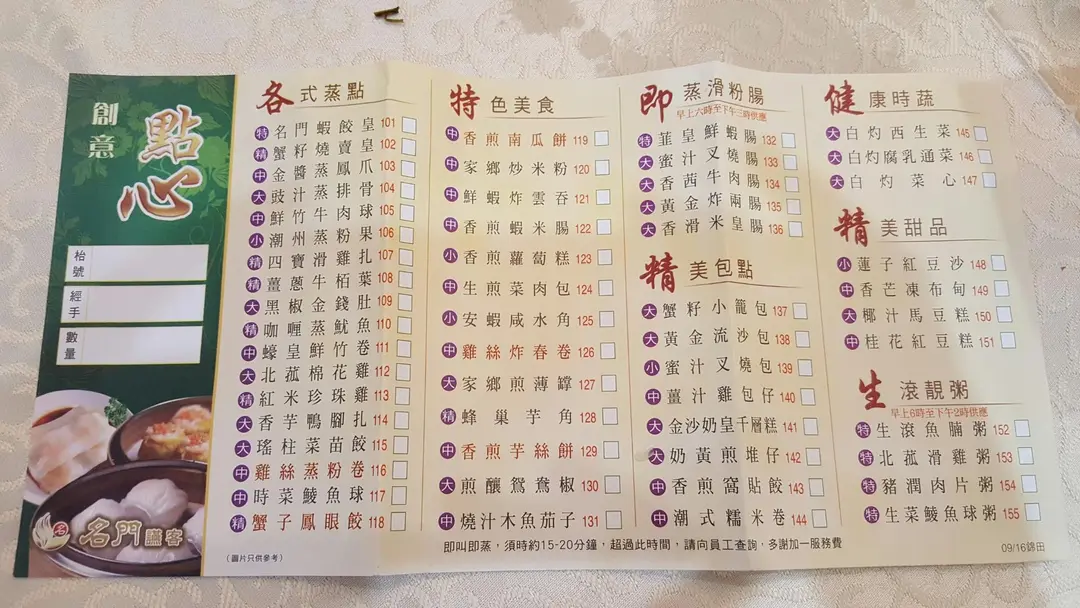 創意
點心
枱號
經手
數量
名門讌客
各式蒸點
特 名門蝦餃皇 101
精 蟹籽燒賣皇 102
中 金醬蒸鳳爪 103
大 豉汁蒸排骨 104
中 鮮竹牛肉球 105
小 潮州蒸粉果 106
精 四寶滑雞扎 107
精 薑蔥牛栢葉 108
大 黑椒金錢肚 109
精 咖喱蒸魷魚 110
中 蠔皇鮮竹卷 111
大 北菰棉花雞 112
精 紅米珍珠雞 113
大 香芋鴨腳扎 114
大 瑤柱菜苗餃 115
中 雞絲蒸粉卷 116
中 時菜鯪魚球 117
精 蟹子鳳眼餃 118
(圖片只供參考)
特色美食
中 香煎南瓜餅 119
中 家鄉炒米粉 120
中 鮮蝦炸雲吞 121
中 香煎蝦米腸 122
小 香煎蘿蔔糕 123
中 生煎菜肉包 124
小 安蝦咸水角 125
中 雞絲炸春卷 126
大 家鄉煎薄罉 127
精 蜂巢芋角 128
中 香煎芋絲餅 129
大 煎釀鴛鴦椒 130
中 燒汁木魚茄子 131
即蒸滑粉腸
早上六時至下午三時供應
特 韮皇鮮蝦腸 132
大 蜜汁叉燒腸 133
大 香茜牛肉腸 134
大 黃金炸兩腸 135
大 香滑米皇腸 136
精美包點
大 蟹籽小籠包 137
大 黃金流沙包 138
小 蜜汁叉燒包 139
中 薑汁雞包仔 140
大 金沙奶皇千層糕 141
大 奶黃煎堆仔 142
中 香煎窩貼餃 143
中 潮式糯米卷 144
健康時蔬
大 白灼西生菜 145
大 白灼腐乳通菜 146
大 白灼菜心 147
精美甜品
小 蓮子紅豆沙 148
中 香芒凍布甸 149
大 椰汁馬豆糕 150
中 桂花紅豆糕 151
生滾靚粥
早上6時至下午2時供應
特 生滾魚腩粥 152
特 北菰滑雞粥 153
特 豬潤肉片粥 154
特 生菜鯪魚球粥 155
即叫即蒸，須時約15-20分鐘，超過此時間，請向員工查詢，多謝加一服務費
09/16錦田